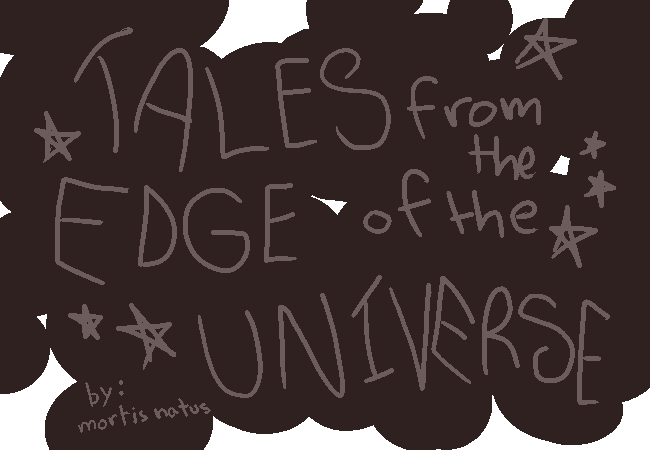 TALES from
the
EDGE of the
UNIVERSE
by:
mortis natus